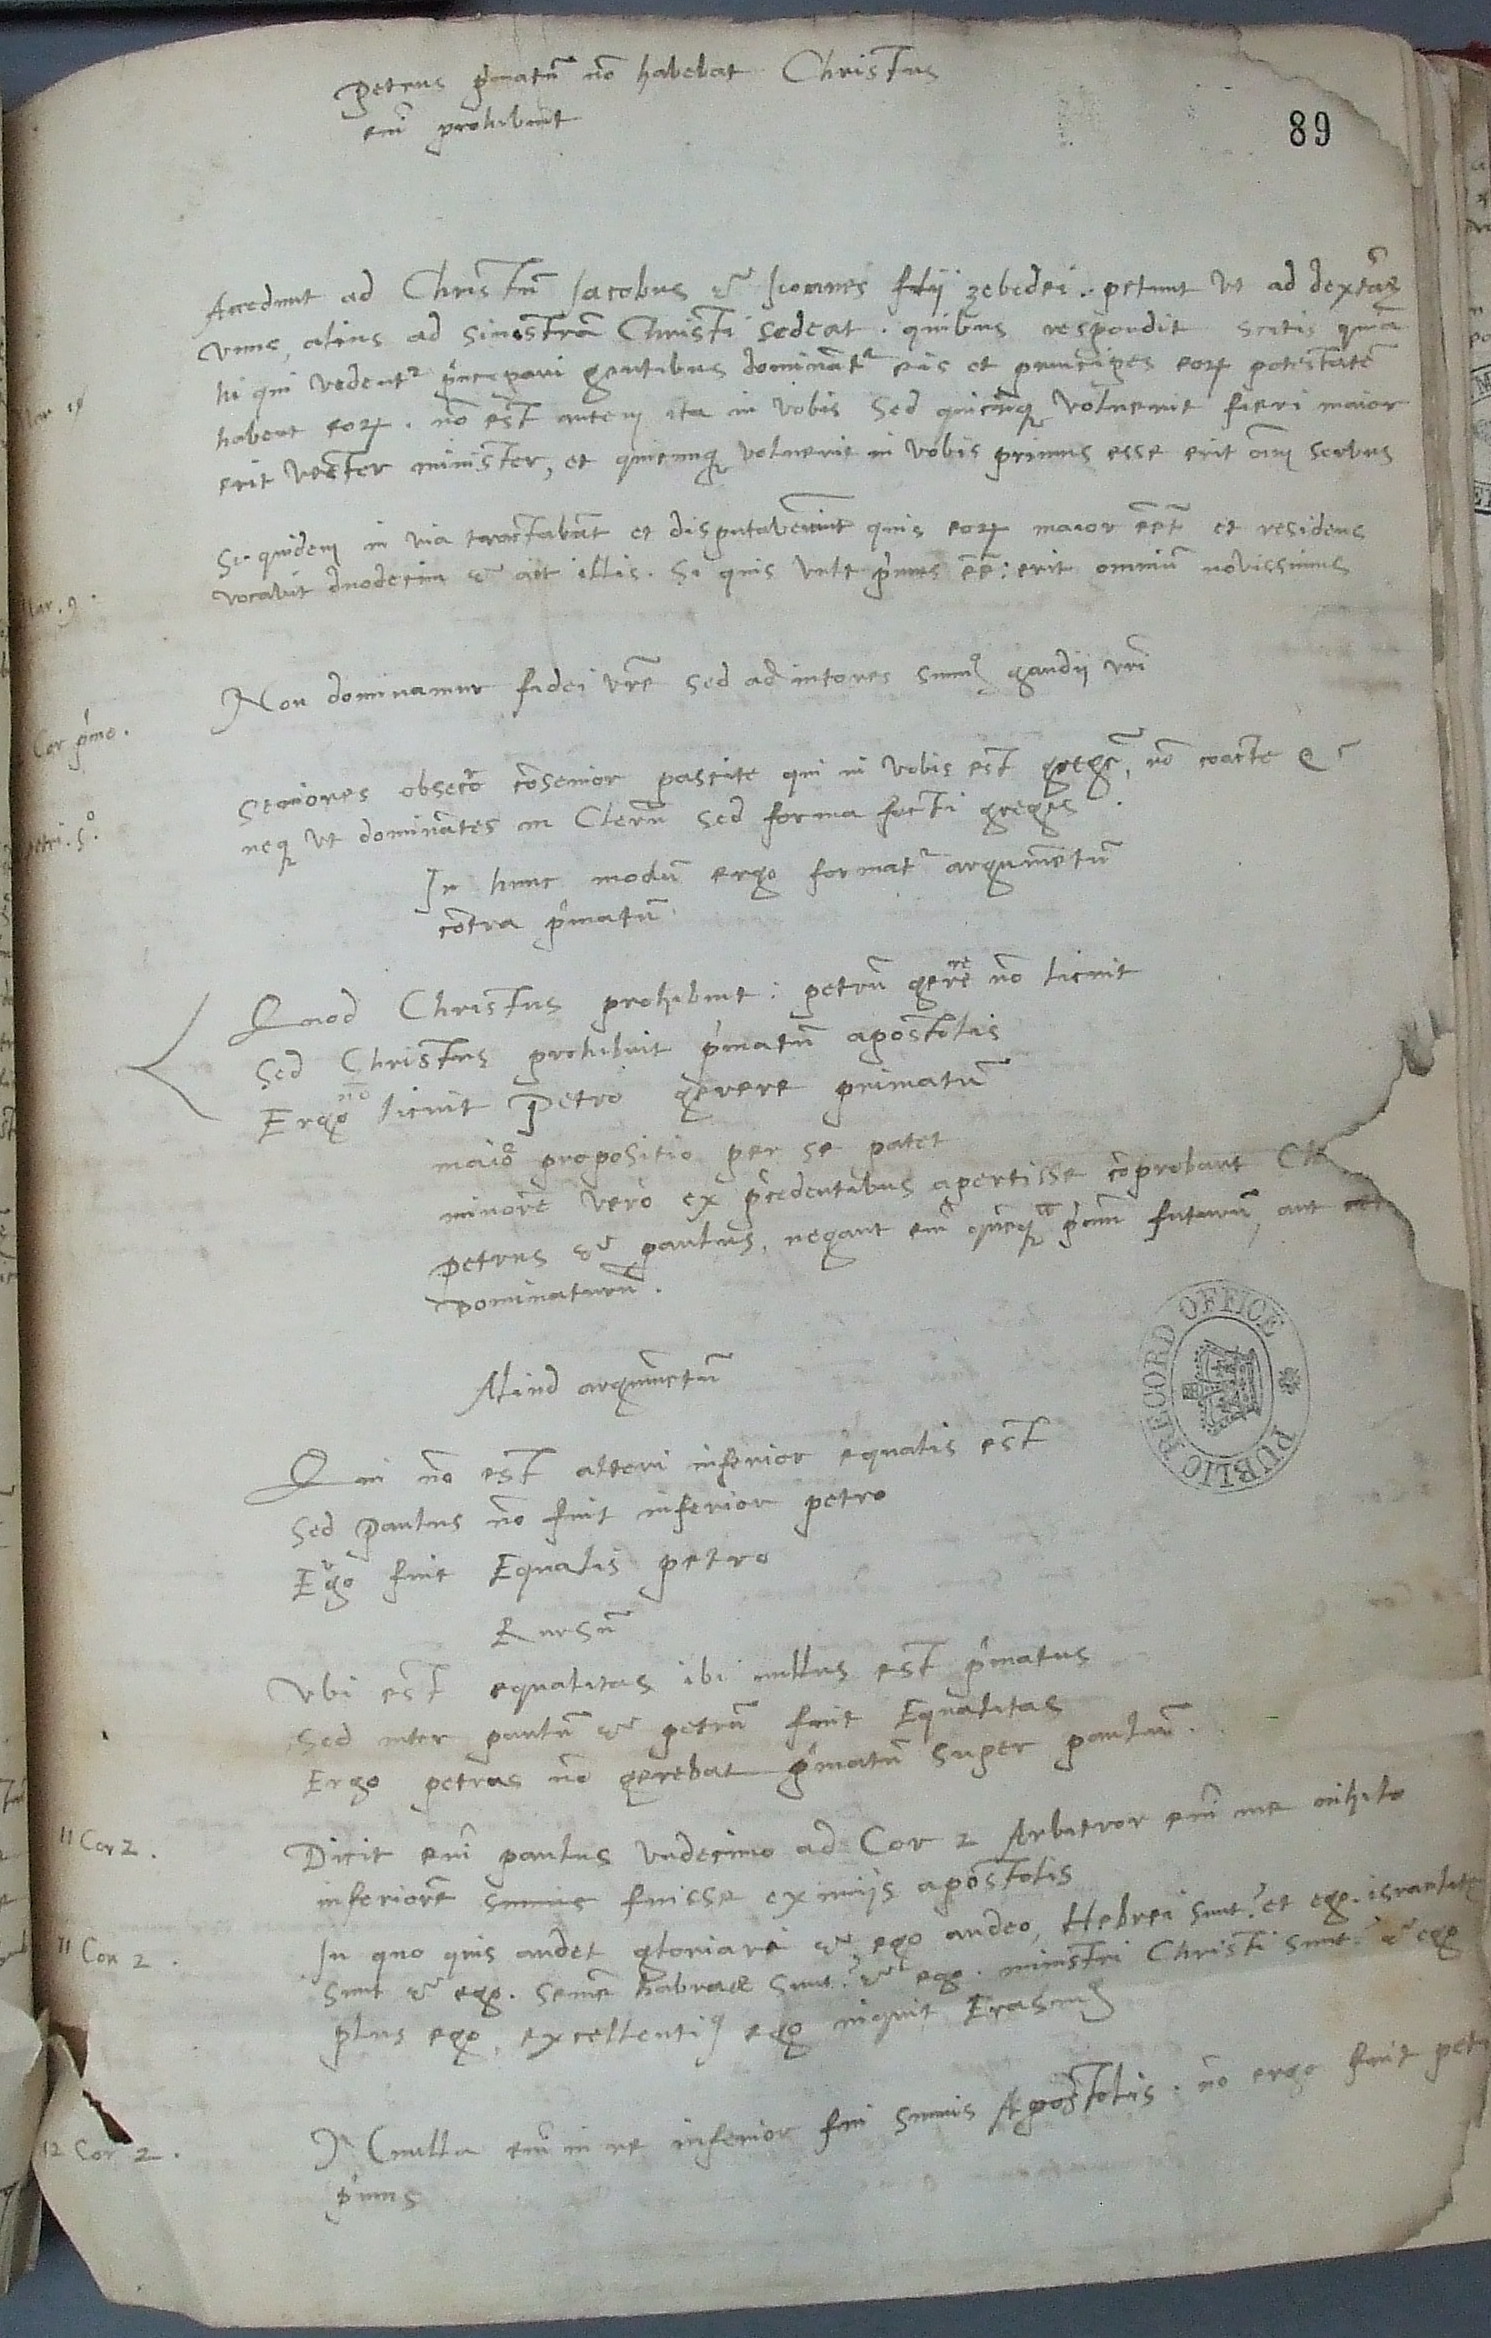 Petrus p̃matũ nõ habebat Christus
eñi prohibuit
89
Accedunt ad Christũ Jacobus & Joannes filii zebedei . petunt ut ad dextrã
unus, alius ad sinistrã Christi sedeat . quibus respondit scitis quia
hi qui videntʳ p̃ncipari gentibus dominãtʳ eis et principes eoꝝ potestatẽ
Mar 10
habent eoꝝ . nõ est autem ita in vobis sed quicũqꝫ voluerit fieri maior
erit vester minister, et quicunqꝫ voluerit in vobis primus esse erit om̃ servus
Siquidem in via tractabãt et disputaverunt quis eoꝝ maior eẽt et residens
Mar . 9 .
vocavit duodecim & ait illis . Si quis vult p̃mus eẽ : erit omniũ novissimus
Non dominamur fidei vr̃e sed adiutores sumꝰ gaudii vr̃i
Cor p̃mo .
Seniores obsecro cõsenior pascite qui in vobis est gregẽ, nõ coacte &c
petri . 5º.
neqꝫ ut dominãtes in Clerũ sed forma facti gregis .
In hunc modũ ergo formatʳ argumẽtũ
cõtra p̃matũ
Quod Christus prohibuit : petrũ gerere nõ licuit
Sed Christus prohibuit p̃matũ apostolis
Ergo nõ licuit Petro gerere primatũ
maior propositio per se patet
minorẽ vero ex p̃cedentibus apertisse cõprobant Ch
petrus & paulus, negant eñi p̃mũ futurũ, aut
dominaturũ .
Aliud argumẽtũ
Qui nõ est alteri inferior equalis est
Sed Paulus nõ fuit inferior petro
Ergo fuit Equalis petro
Rursũ
Ubi est equalitas ibi nullus est p̃matus
Sed inter paulũ & petrũ fuit Equalitas
Ergo petrus nõ gerebat p̃matũ super paulũ .
11 Cor 2 .
Dicit eñi paulus undecimo ad Cor 2 Arbitror eñi me nihilo
inferiorẽ sumis fuisse eximijs apostolis
11 Cor 2 .
In quo quis audet gloriari & ego audeo, Hebrei sunt? et ego . israelite
sunt & ego . semẽ habrae sunt? & ego . ministri Christi sunt? & ego
plus ego, excellentiꝰ ego inquit Erasmꝰ
12 Cor 2 .
Nulla eñi in re inferior fui sumis Apostolis . nõ ergo fuit pet
p̃mus
PUBLIC RECORD OFFICE